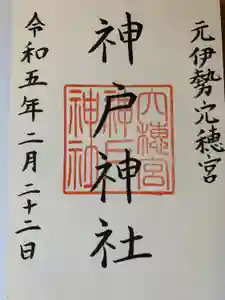 元伊勢宍穂宮
神戸神社
令和五年二月二十二日
穴穂宮
神戸
神社